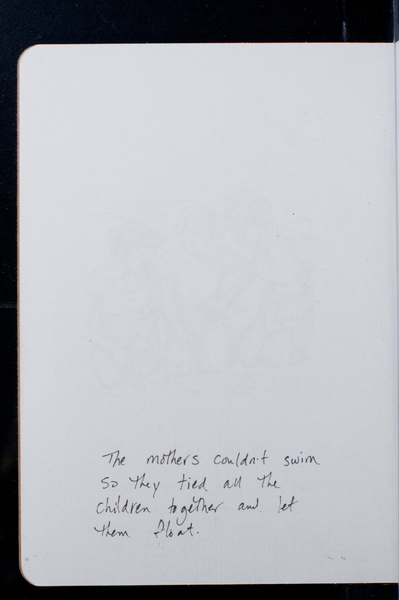 The mothers couldn't swim
so they tied all the
children together and let
them float.